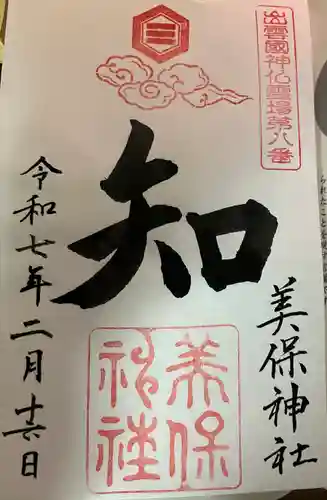 出雲國神仏霊場第八番
三
知
美保神社
美保
神社
令和七年二月十六日